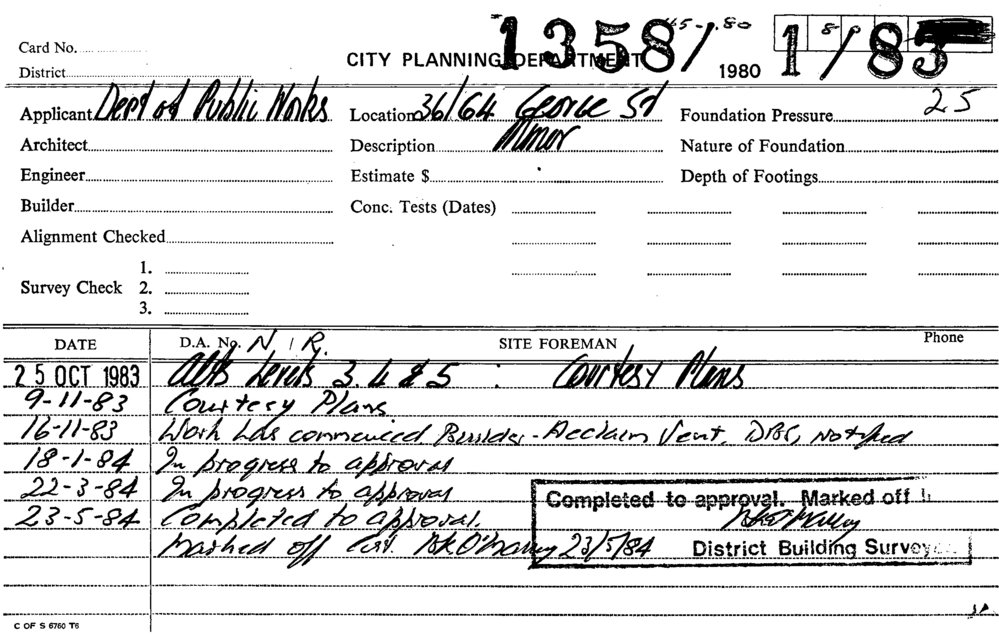 45-1.80
8 0
Card No.
13581/
1/83
CITY PLANNING DEPARTMENT
1980
District
Applicant Dept of Public Works
Location 36/64 George St
Foundation Pressure 25
Architect
Description Minor
Nature of Foundation
Engineer
Estimate $
Depth of Footings
Builder
Conc. Tests (Dates)
Alignment Checked
1.
Survey Check 2.
3.
DATE
D.A. No. N/R.
SITE FOREMAN
Phone
25 OCT 1983 Alts Levels 3. 4 & 5 : Courtesy Plans
9-11-83 Courtesy Plans
16-11-83 Work has commenced Builder - Acclaim Vent. DBS, notified
18-1-84 In progress to approval
22-3-84 In progress to approval
23-5-84 Completed to approval.
Marked off 23/5/84
Completed to approval. Marked off
District Building Surveyor
C OF S 6760 T6